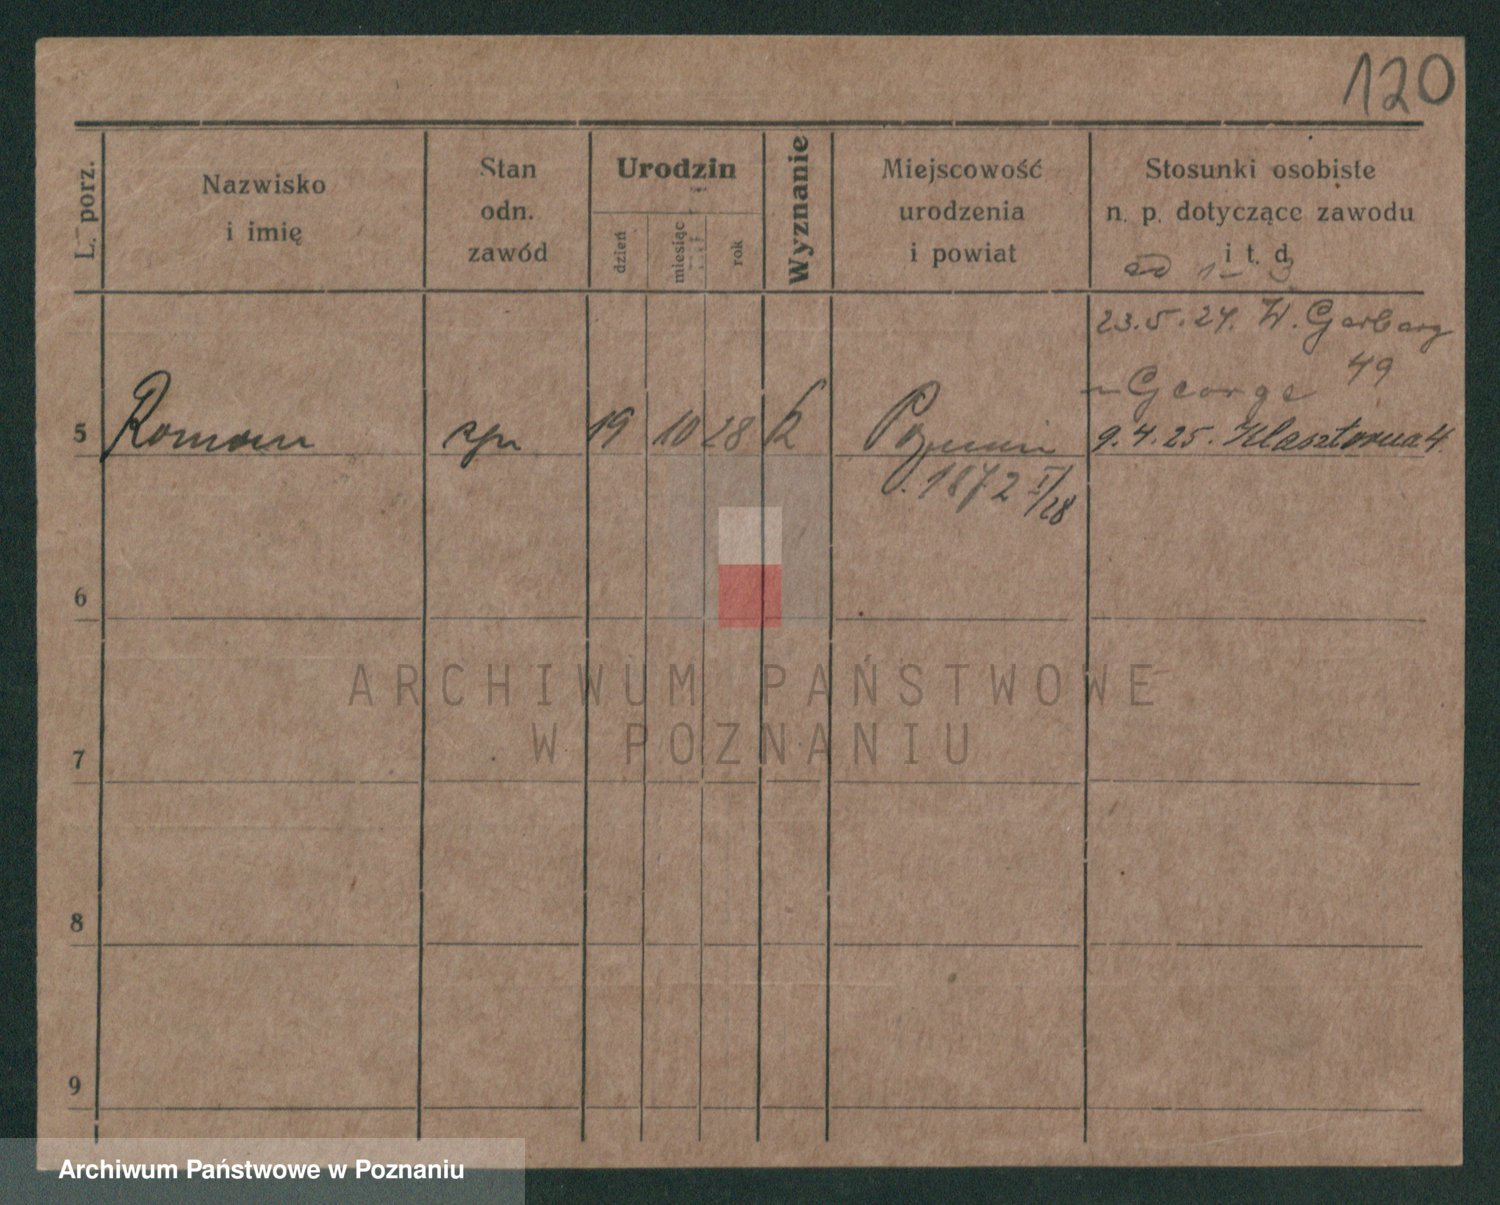 120
L. porz.
Nazwisko
i imię
Stan
odn.
zawód
Urodzin
dzień
miesiąc
rok
Wyznanie
Miejscowość
urodzenia
i powiat
Stosunki osobiste
n. p. dotyczące zawodu
i t. d.
ad 1 - 3
23.5.24. W. Garbary
49
George
5 Roman syn 19 10 28 k 9.4.25. Klasztorna 4.
1872 I/28
6
7
8
9
ARCHIWUM PAŃSTWOWE
W POZNANIU
Archiwum Państwowe w Poznaniu